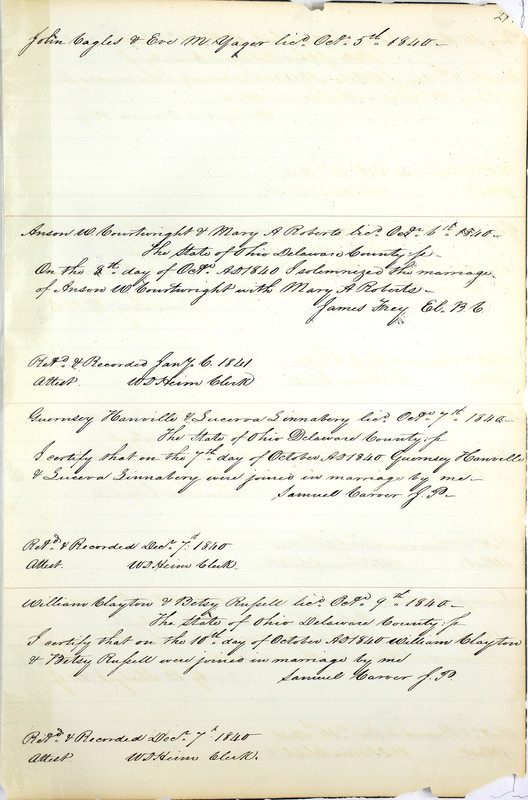 John Cagles & Eve M. Yager lic.d Oct.r 5th 1840 —
Anson W. Courtwright & Mary A Roberts lic.d Oct.r 6th 1840 —
The State of Ohio Delaware County ss —
On the 8th day of Oct.r AD 1840 I solemnized the marriage
of Anson W Courtwright with Mary A Roberts —
James Frey El. B. C
Ret.d & Recorded Jany 6. 1841
Attest. W D Heim Clerk
Guernsey Hanville & Lucerva Linnabery lic.d Oct.r 7th 1840 —
The State of Ohio Delaware County ss
I certify that on the 7th day of October AD 1840 Guernsey Hanville
& Lucerva Linnabery were joined in marriage by me —
Samuel Carver J. P —
Ret.d & Recorded Dec.r 7th 1840
Attest. W D Heim Clerk.
William Clayton & Betsy Rufsell lic.d Oct.r 9th 1840 —
The State of Ohio Delaware County ss
I certify that on the 10th day of October AD 1840 William Clayton
& Betsy Rufsell were joined in marriage by me
Samuel Carver J. P.
Ret.d & Recorded Dec.r 7th 1840
Attest W D Heim Clerk.